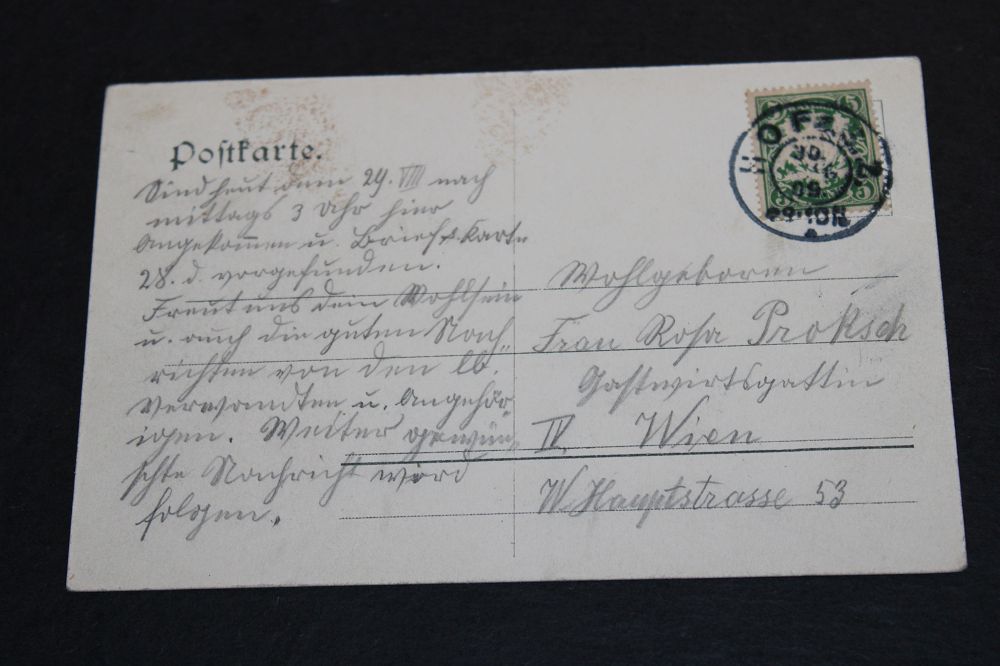 Postkarte.
Sind heut dem 29. VIII nach
mittags 3 Uhr hier
Angekommen u. Brief u. Karte
28. d. vorgefunden.
Freut uns dein Wohlsein
u. auch die guten Nach-
richten von den lb.
Verwandten u. Angehör-
igen. Weiter gewün-
schte Nachricht wird
folgen.
HOF
5 5
5 5
Wohlgeboren
Frau Rosa Proksch
Gastwirtsgattin
IV. Wien
W. Hauptstrasse 53